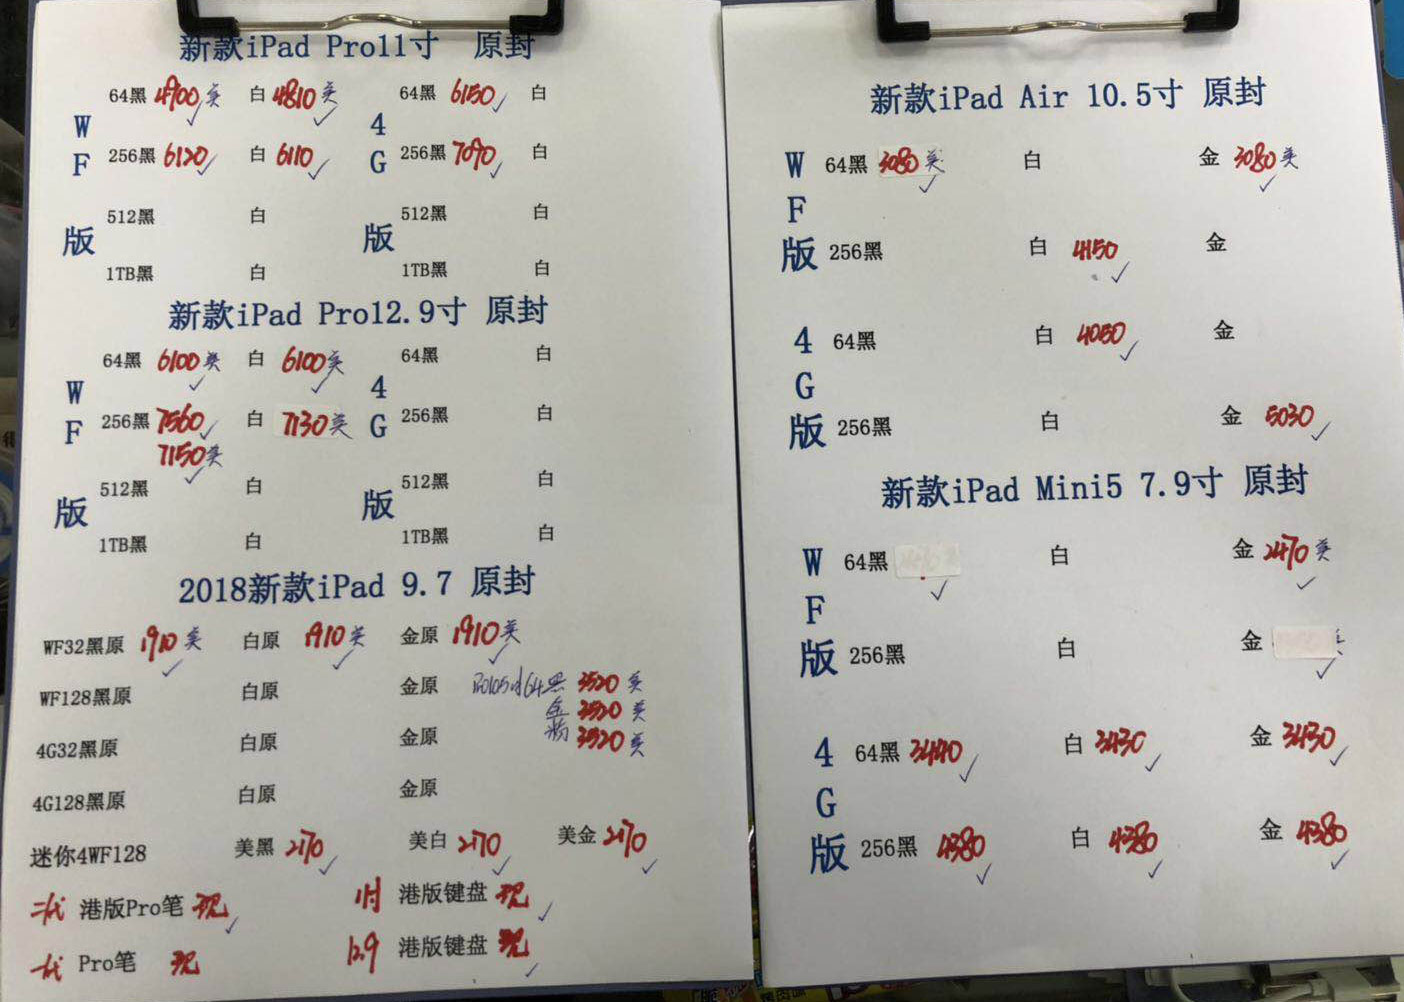 新款iPad Pro11寸 原封
64黑 4900美 白 4810美 64黑 6150 白
WF版 4G版
256黑 6120 白 6110 256黑 7090 白
512黑 白 512黑 白
1TB黑 白 1TB黑 白
新款iPad Pro12.9寸 原封
64黑 6100美 白 6100美 64黑 白
WF版 4G版
256黑 7560 白 7130美 256黑 白
7150美
512黑 白 512黑 白
1TB黑 白 1TB黑 白
2018新款iPad 9.7 原封
WF32黑原 1910美 白原 1910美 金原 1910美
WF128黑原 白原 金原 64黑 3520美
金 3520美
4G32黑原 白原 金原 粉 3520美
4G128黑原 白原 金原
迷你4WF128 美黑 2170 美白 2170 美金 2170
二代 港版Pro笔 现 11寸 港版键盘 现
一代 Pro笔 现 12.9 港版键盘 现
新款iPad Air 10.5寸 原封
WF版
64黑 3080美 白 金 3080美
256黑 白 4150 金
4G版
64黑 白 4050 金
256黑 白 金 5030
新款iPad Mini5 7.9寸 原封
WF版
64黑 白 金 2470美
256黑 白 金
4G版
64黑 3440 白 3430 金 3430
256黑 4380 白 4380 金 4380